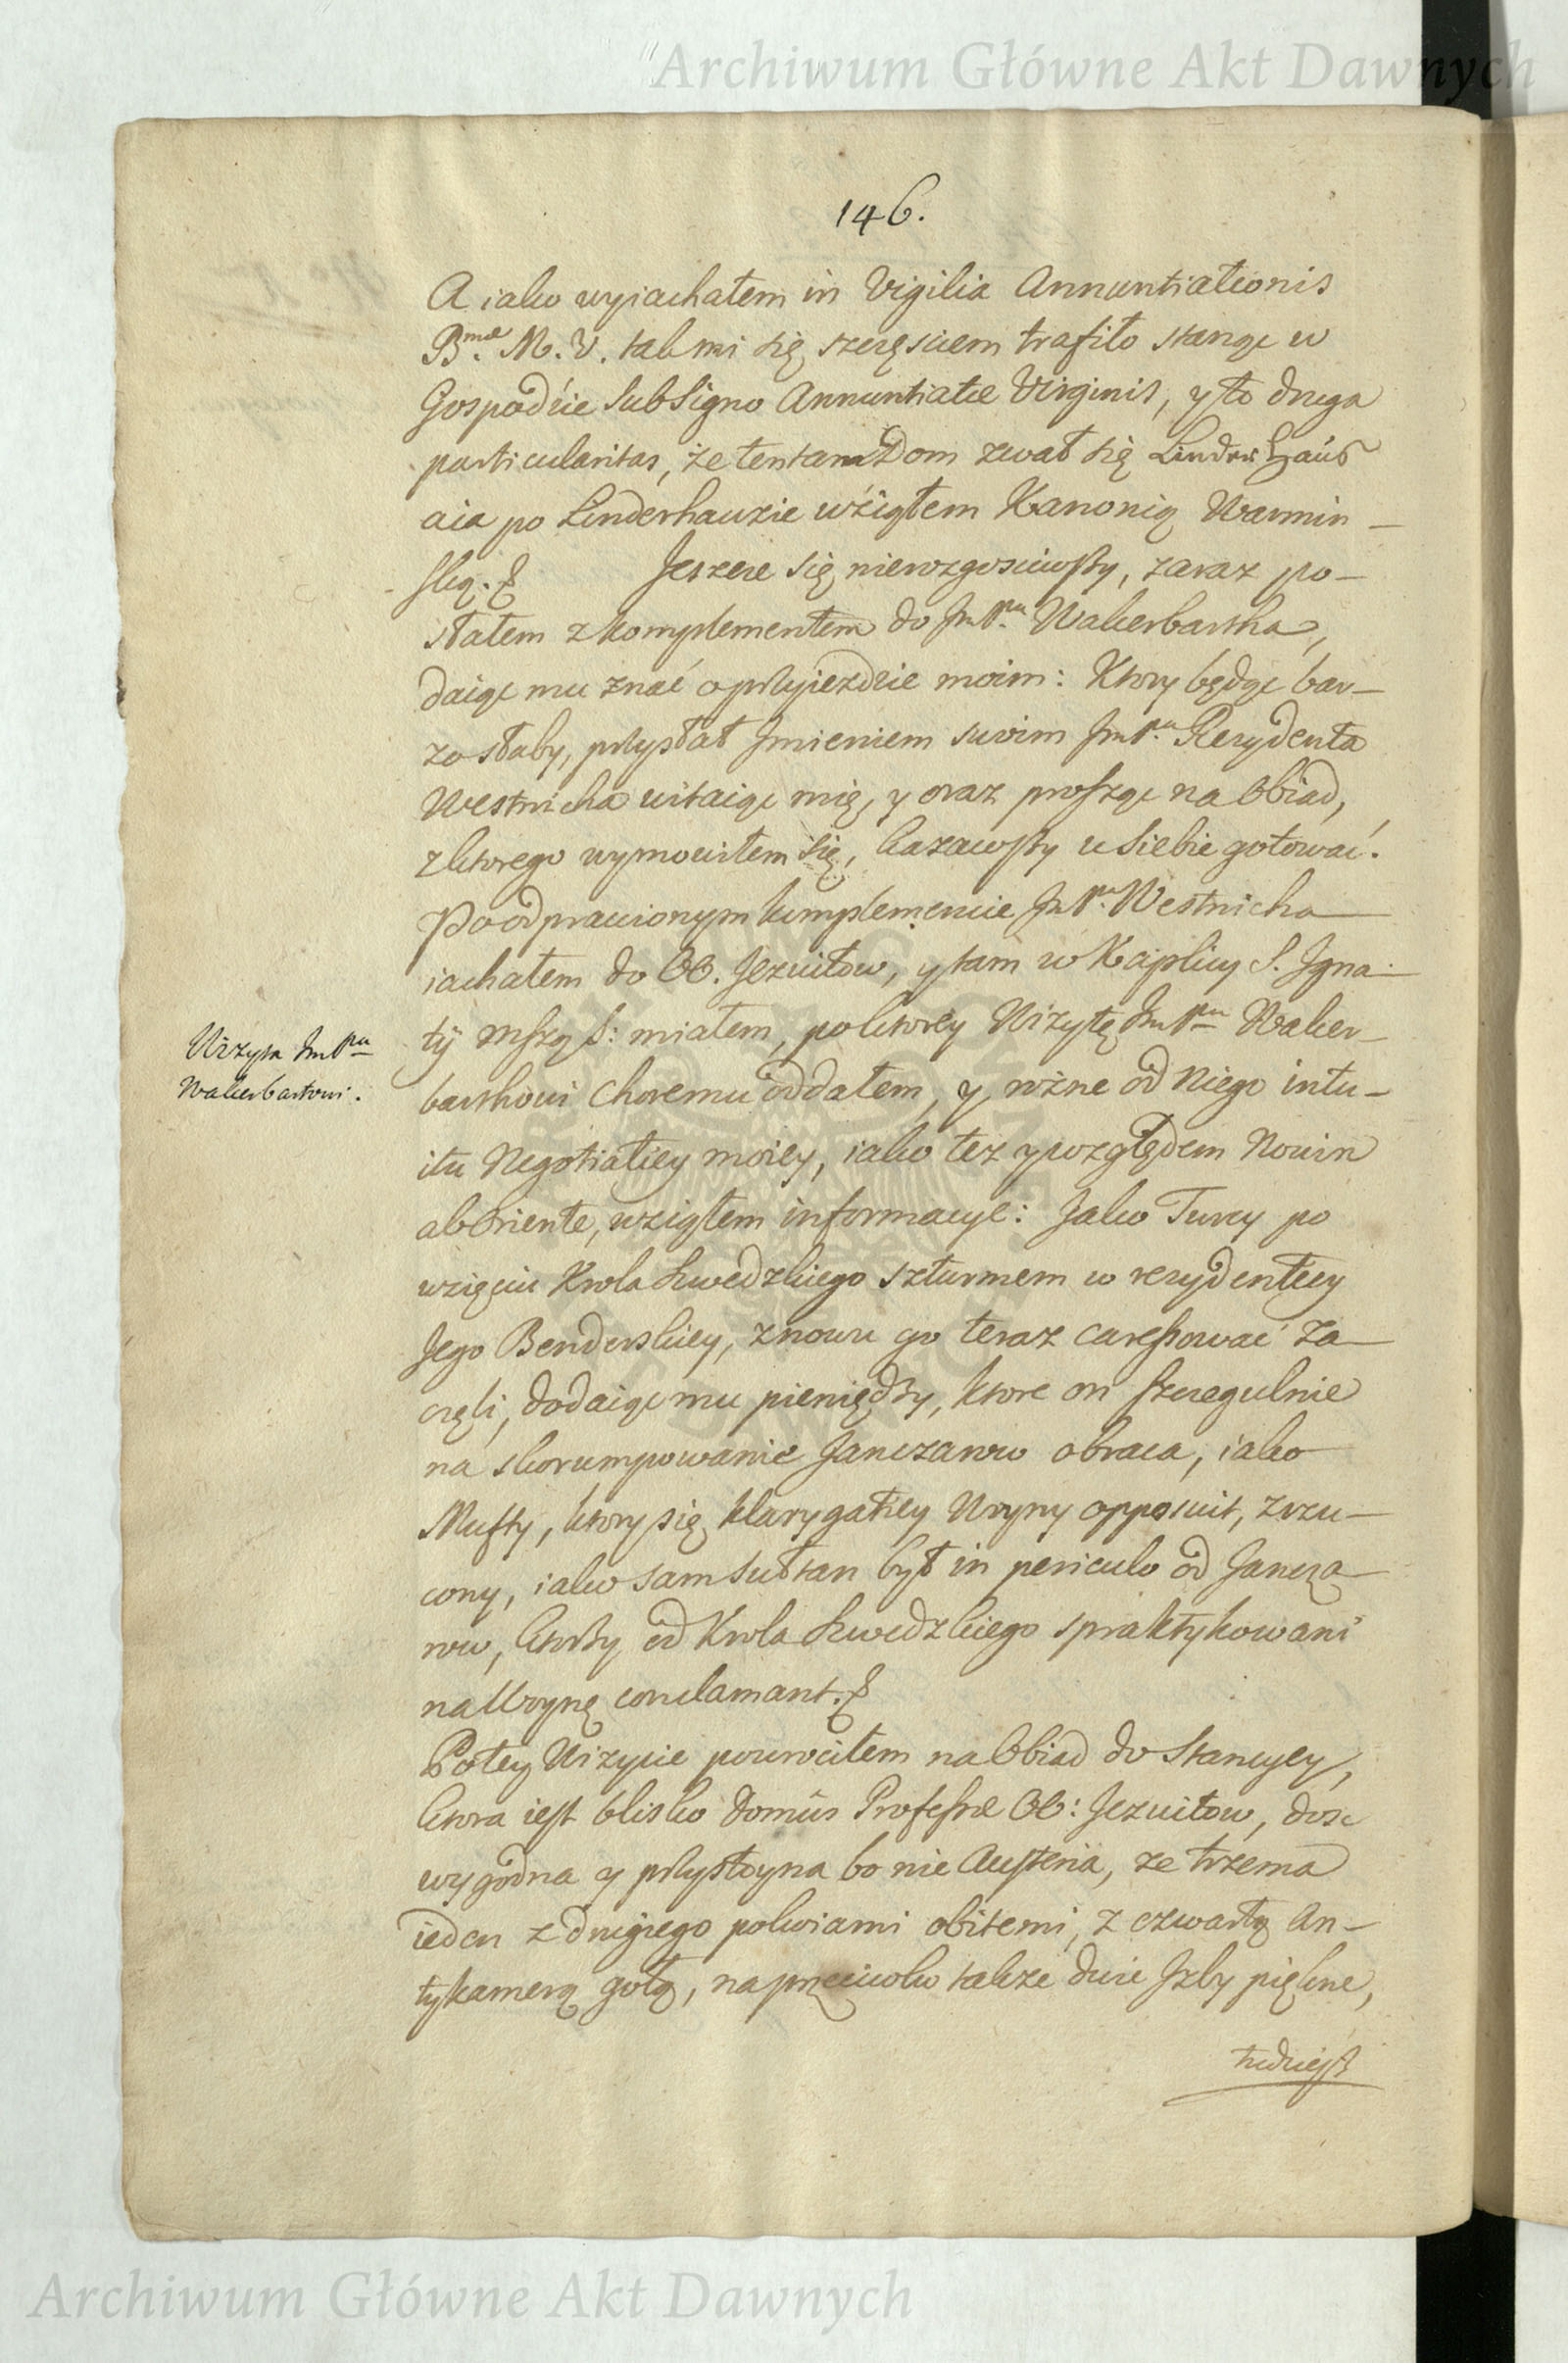 Archiwum Główne Akt Dawnych
146.
A iako wyiachałem in Vigilia Annuntiationis
B.mæ M. V. tak mi się szczęściem trafiło stanąć w
Gospodzie sub Signo Annuntiatæ Virginis, y to druga
particularitas, że ten tam Dom zwał się Linder Haus
a ia po Linderhauzie wźiąłem Kanonią Warmin-
ską. Jeszcze się nierozgościwszy, zaraz po-
słałem z komplementem do Jm P.na Wakerbartha,
daiąc mu znać o przyjezdzie moim: Ktory będąc bar-
zo słaby, przysłał Jmieniem swoim Jm P.na Rezydenta
Westnicha witaiąc mię, y oraz prosząc na Obiad,
z ktorego wymowiłem się, kazawszy u siebie gotować.
Po odprawionym komplemencie Jm P.na Westnicha
iachałem do OO. Jezuitow, y tam w Kaplicy S. Jgna-
tÿ mszą S: miałem, po ktorey Wizytę Jm P.nu Waker-
barthowi choremu oddałem, y rożne od Niego intu-
itu Negotiatiey moiey, iako też y względem Nowin
ab Oriente, wziąłem informacye: Jako Turcy po
wzięciu Krola Szwedzkiego szturmem w rezydentiey
Jego Benderskiey, znowu go teraz caressować za-
częli, dodaiąc mu pieniędzy, ktore on szczegulnie
na skorumpowanie Janczarow obraca, iako
Mufty, ktory się klarygatiey Woyny opposuit, zrzu-
cony, iako sam Sułtan był in periculo od Jancza-
row, ktorzy od Krola Szwedzkiego spraktykowani
na Woynę conclamant.
Po tey Wizycie powrociłem na Obiad do Stancyey,
ktora iest blisko Domûs Professæ OO: Jezuitow, dosc
wygodna y przystoyna bo nie Austeria, ze trzema
ieden z drugiego pokoiami obitemi, z czwartą An-
tykamerą gołą, naprzeciwko także dwie Jzby piękne,
tudziesz
Wizyta Jm P.nu
Wakerbartowi.
Archiwum Główne Akt Dawnych